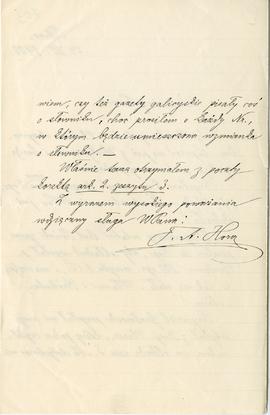 wiem, czy też gazety galicyjskie pisały coś
o słowniku, choć prosiłem o każdy Nr.,
w którym będzie umieszczona wzmianka
o słowniku. —
Właśnie teraz otrzymałem z poczty
korektę ark. 2. zeszytu 3.
Z wyrazem wysokiego poważania
wdzięczny sługa
F. A. Hora